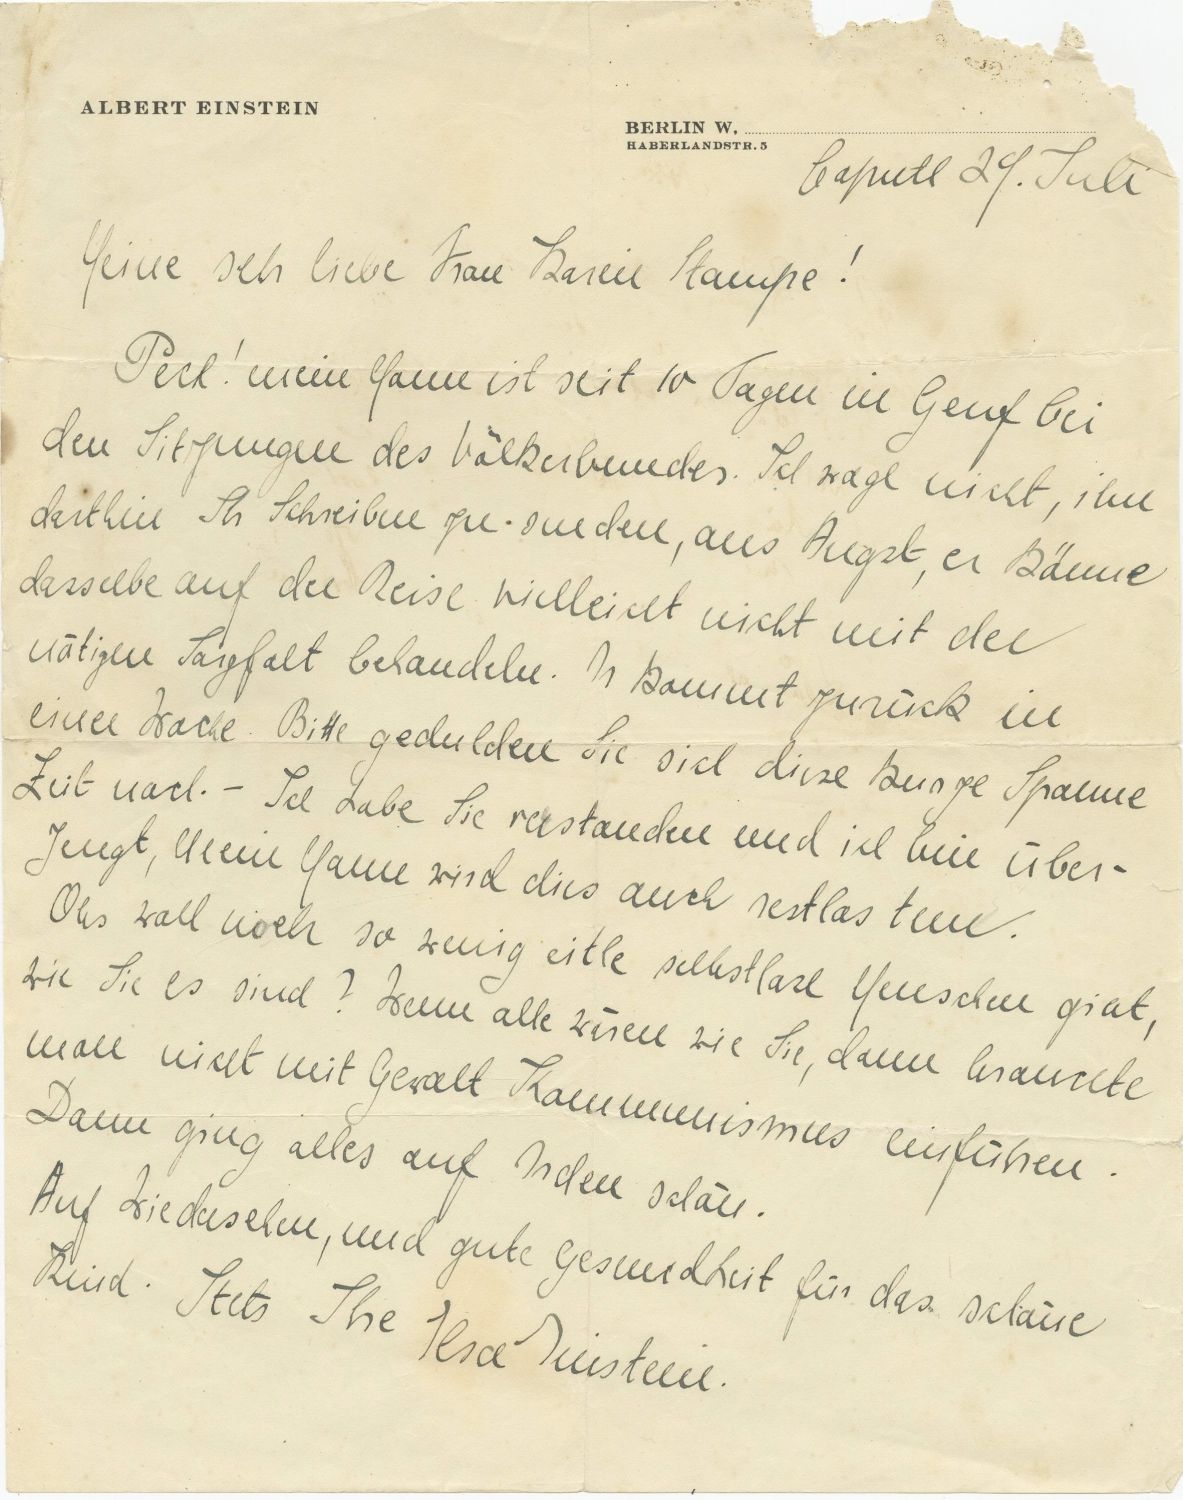 ALBERT EINSTEIN
BERLIN W.
HABERLANDSTR. 5
Caputh 29. Juli
Meine sehr liebe Frau Karin Stampe!
Pech! mein Mann ist seit 10 Tagen in Genf bei
den Sitzungen des Völkerbundes. Ich wage nicht, ihm
dorthin Ihr Schreiben zu senden, aus Angst, er könne
dasselbe auf der Reise vielleicht nicht mit der
nötigen Sorgfalt behandeln. Er kommt zurück in
einer Woche. Bitte gedulden Sie sich diese kurze Spanne
Zeit noch. – Ich habe Sie verstanden und ich bin über-
zeugt, Mein Mann wird dies auch restlos tun.
Obs wohl noch so wenig eitle selbstlose Menschen giebt,
wie Sie es sind? Wenn alle wären wie Sie, dann brauchte
man nicht mit Gewalt Kommunismus einführen.
Dann ging alles auf Erden schön.
Auf Wiedersehen, und gute Gesundheit für das schöne
Kind. Stets Ihre
Elsa Einstein.